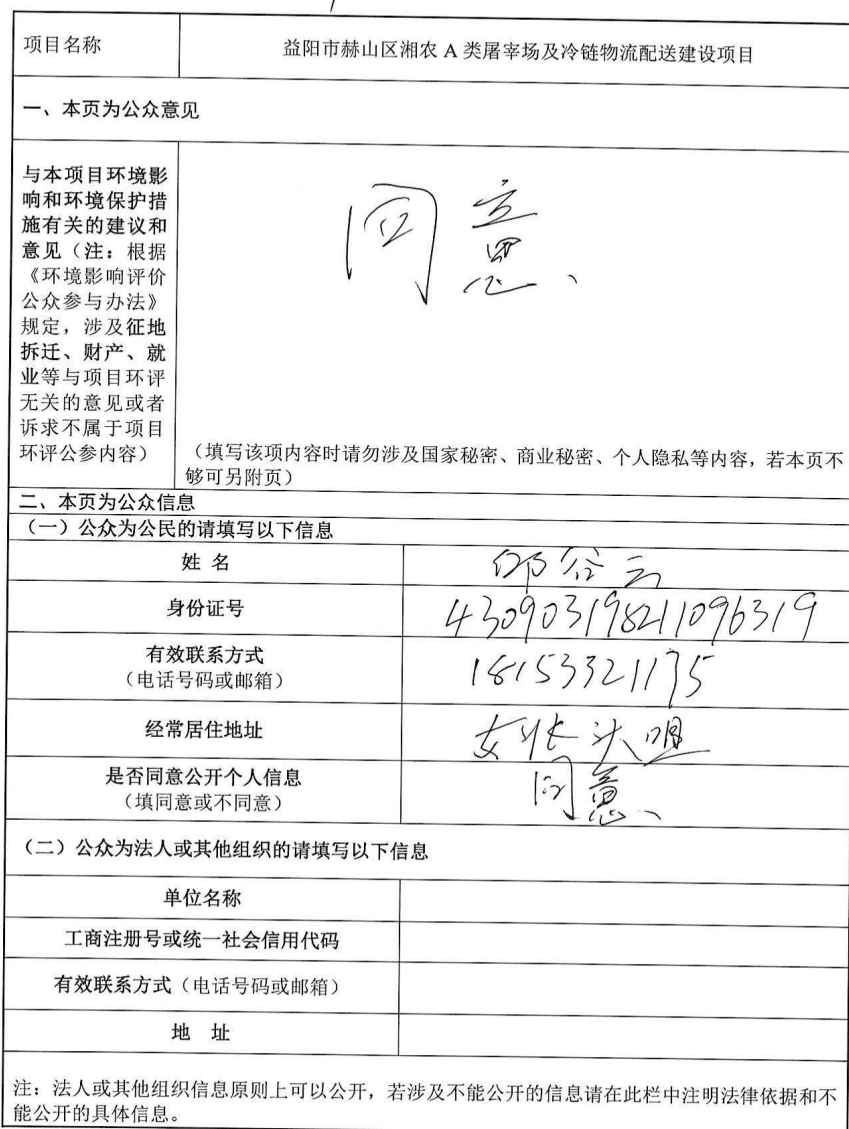 项目名称
益阳市赫山区湘农 A 类屠宰场及冷链物流配送建设项目
一、本页为公众意见
与本项目环境影
响和环境保护措
施有关的建议和
意见（注：根据
《环境影响评价
公众参与办法》
规定，涉及征地
拆迁、财产、就
业等与项目环评
无关的意见或者
诉求不属于项目
环评公参内容）
同意、
（填写该项内容时请勿涉及国家秘密、商业秘密、个人隐私等内容，若本页不
够可另附页）
二、本页为公众信息
（一）公众为公民的请填写以下信息
姓 名
身份证号
430903198211096319
有效联系方式
（电话号码或邮箱）
18153321175
经常居住地址
是否同意公开个人信息
（填同意或不同意）
同意、
（二）公众为法人或其他组织的请填写以下信息
单位名称
工商注册号或统一社会信用代码
有效联系方式（电话号码或邮箱）
地 址
注：法人或其他组织信息原则上可以公开，若涉及不能公开的信息请在此栏中注明法律依据和不
能公开的具体信息。